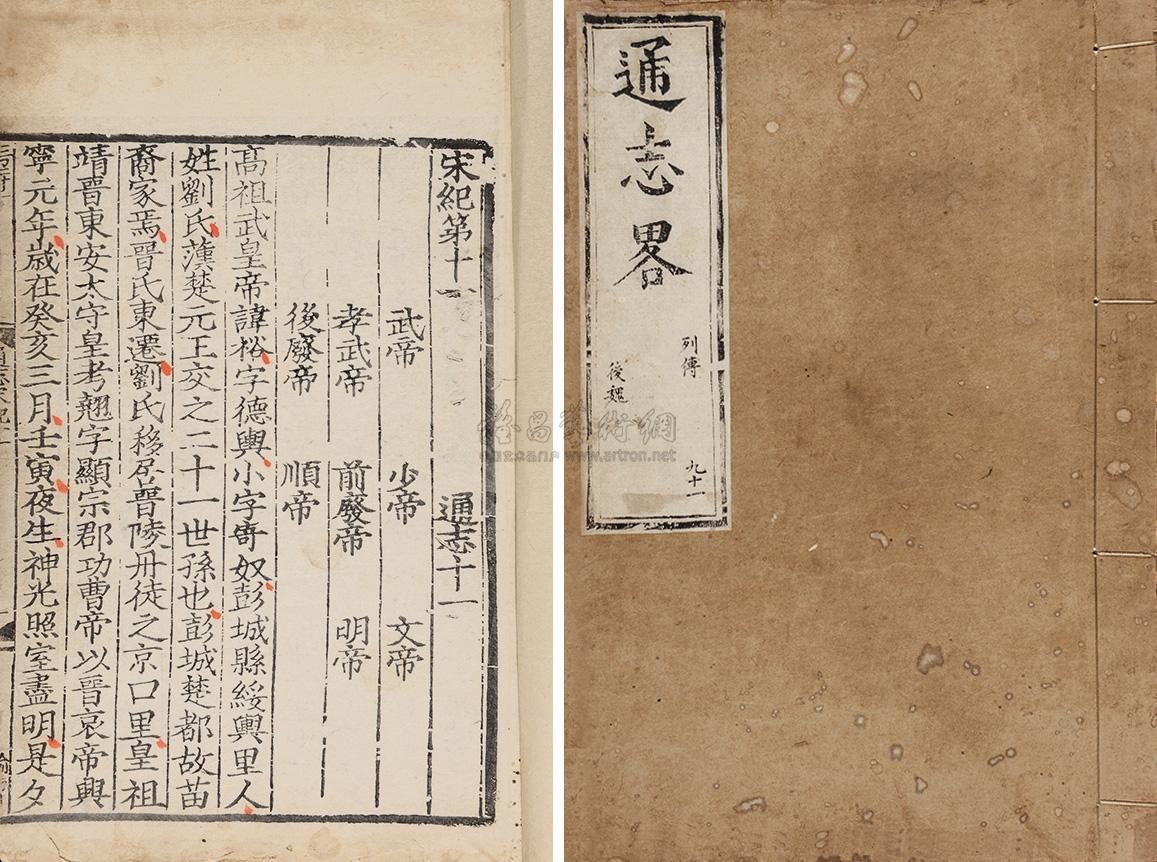 宋紀第十一 通志十一
武帝 少帝 文帝
孝武帝 前廢帝 明帝
後廢帝 順帝
高祖武皇帝諱裕字德輿小字寄奴彭城縣綏輿里人
姓劉氏漢楚元王交之二十一世孫也彭城楚都故苗
裔家焉晉氏東遷劉氏移居晉陵丹徒之京口里皇祖
靖晉東安太守皇考翹字顯宗郡功曹帝以晉哀帝興
寧元年歲在癸亥三月壬寅夜生神光照室盡明是夕
通志畧
列傳
後魏
九十一
www.artron.net